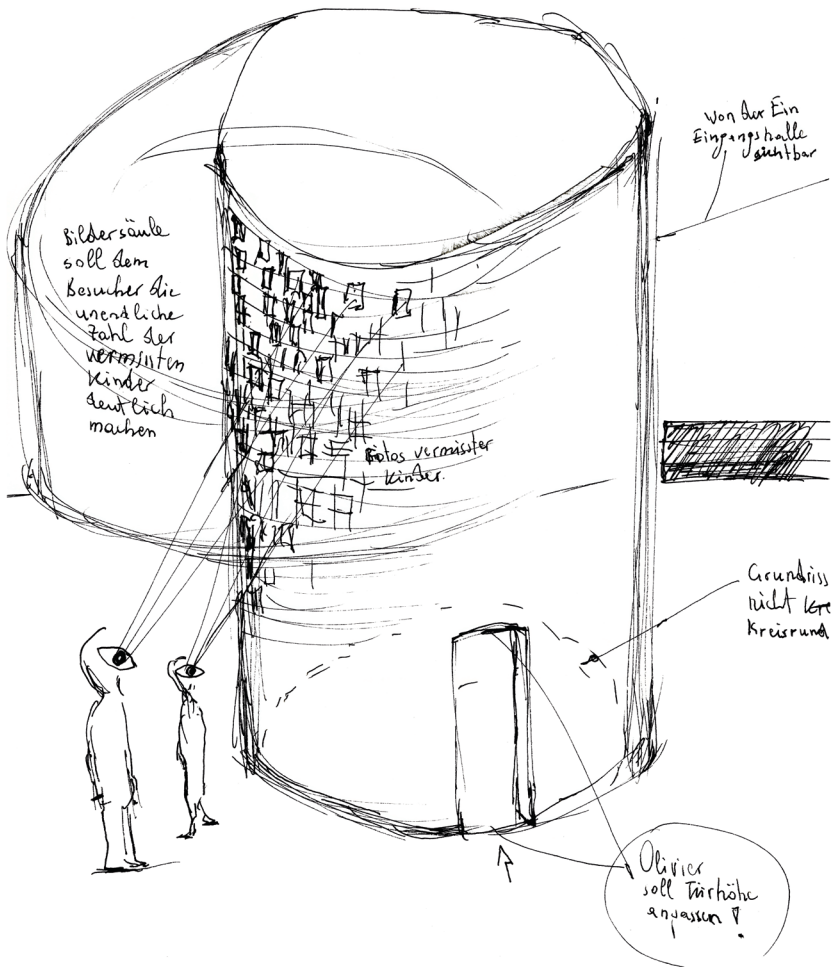 Von der Ein
Eingangshalle
sichtbar
Bildersäule
soll dem
Besucher die
unendliche
Zahl der
vermissten
Kinder
deutlich
machen
Fotos vermisster
Kinder.
Grundriss
nicht
Kreisrund
Olivier
soll Türhöhe
anpassen!